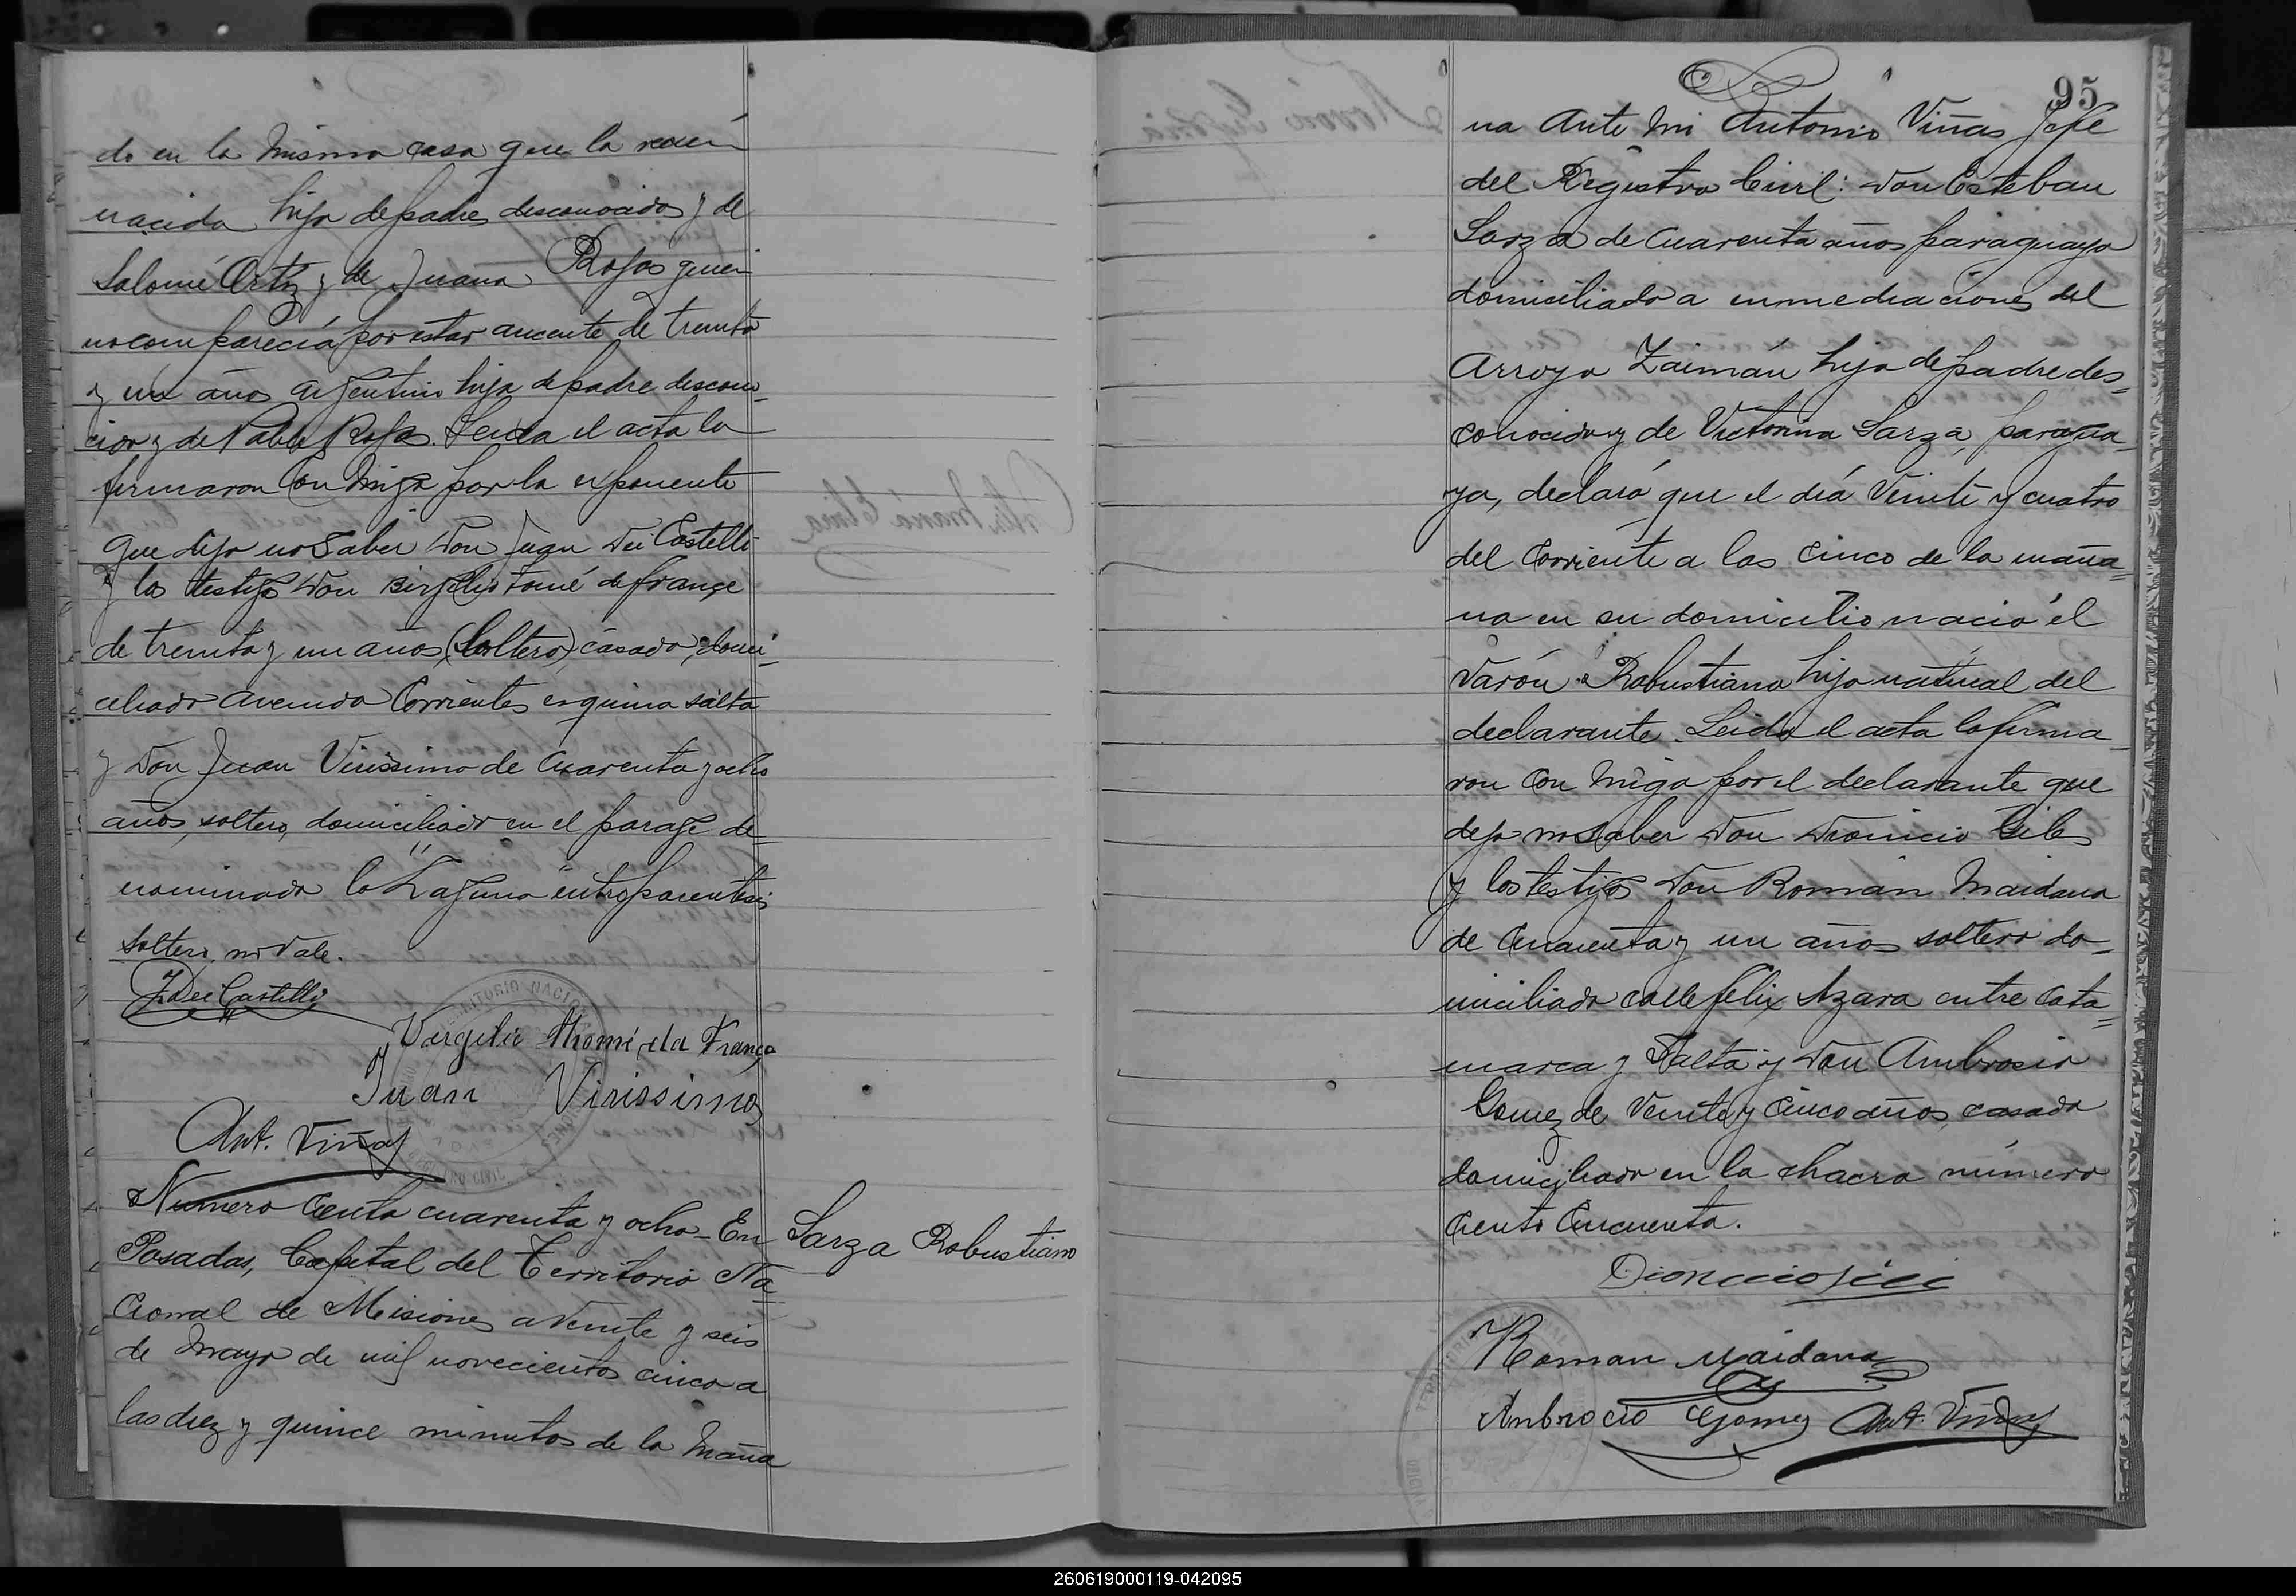 do en la misma casa que la recien
nacida hija de padre desconocido y de
Salomé Ortiz y de Juana Rojas quien
no comparecía por estar ausente de treinta
y un años argentino hijo de padre descono=
cido y de Pabla Rojas. Leida el acta la
firmaron Con migo por la esponente
que dijo no Saber Don Juan Dei Castelli
y los testigos Don Birgilio Tomé de france
de treinta y un años, (Soltero), casado, domi=
ciliado avenida Corrientes esquina salta
y Don Juan Virissimo de Cuarenta y ocho
años, soltero, domiciliado en el parage de=
nominado la "Laguna" entre parentesis
Soltero, no Vale.
J. Dei Castelli
Virgilio Thomé da França
Juan Virissimo
Ant. Viñas
Numero Ciento cuarenta y ocho - En
Posadas, Capital del Territorio Na=
Cional de Misiones a Veinte y seis
de Mayo de mil novecientos cinco a
las diez y quince minutos de la Maña
Sarza Robustiano
95
na Ante Mi Antonio Viñas Jefe
del Registro Civil: Don Esteban
Sarza de Cuarenta años paraguayo
domiciliado a inmediaciones del
Arroyo Zaimán hijo de padre des=
conocido y de Victorina Sarza, paragua=
ya, declaró que el día Veinte y cuatro
del Corriente a las Cinco de la maña=
na en su domicilio nació el
Varón Robustiano hijo natural del
declarante. Leida el acta la firma=
ron Con migo por el declarante que
dijo no Saber Don Dionicio Giles
y los testigos Don Román Maidana
de Cuarenta y un años soltero do=
miciliado calle felix Azara entre Cata=
marca y Salta y Don Ambrosio
Gomez de Veinte y Cinco años, casado
domiciliado en la chacra número
Ciento Cincuenta.
Dionicio
Roman Maidana
Ambrocio Gomez Ant. Viñas
260619000119-042095